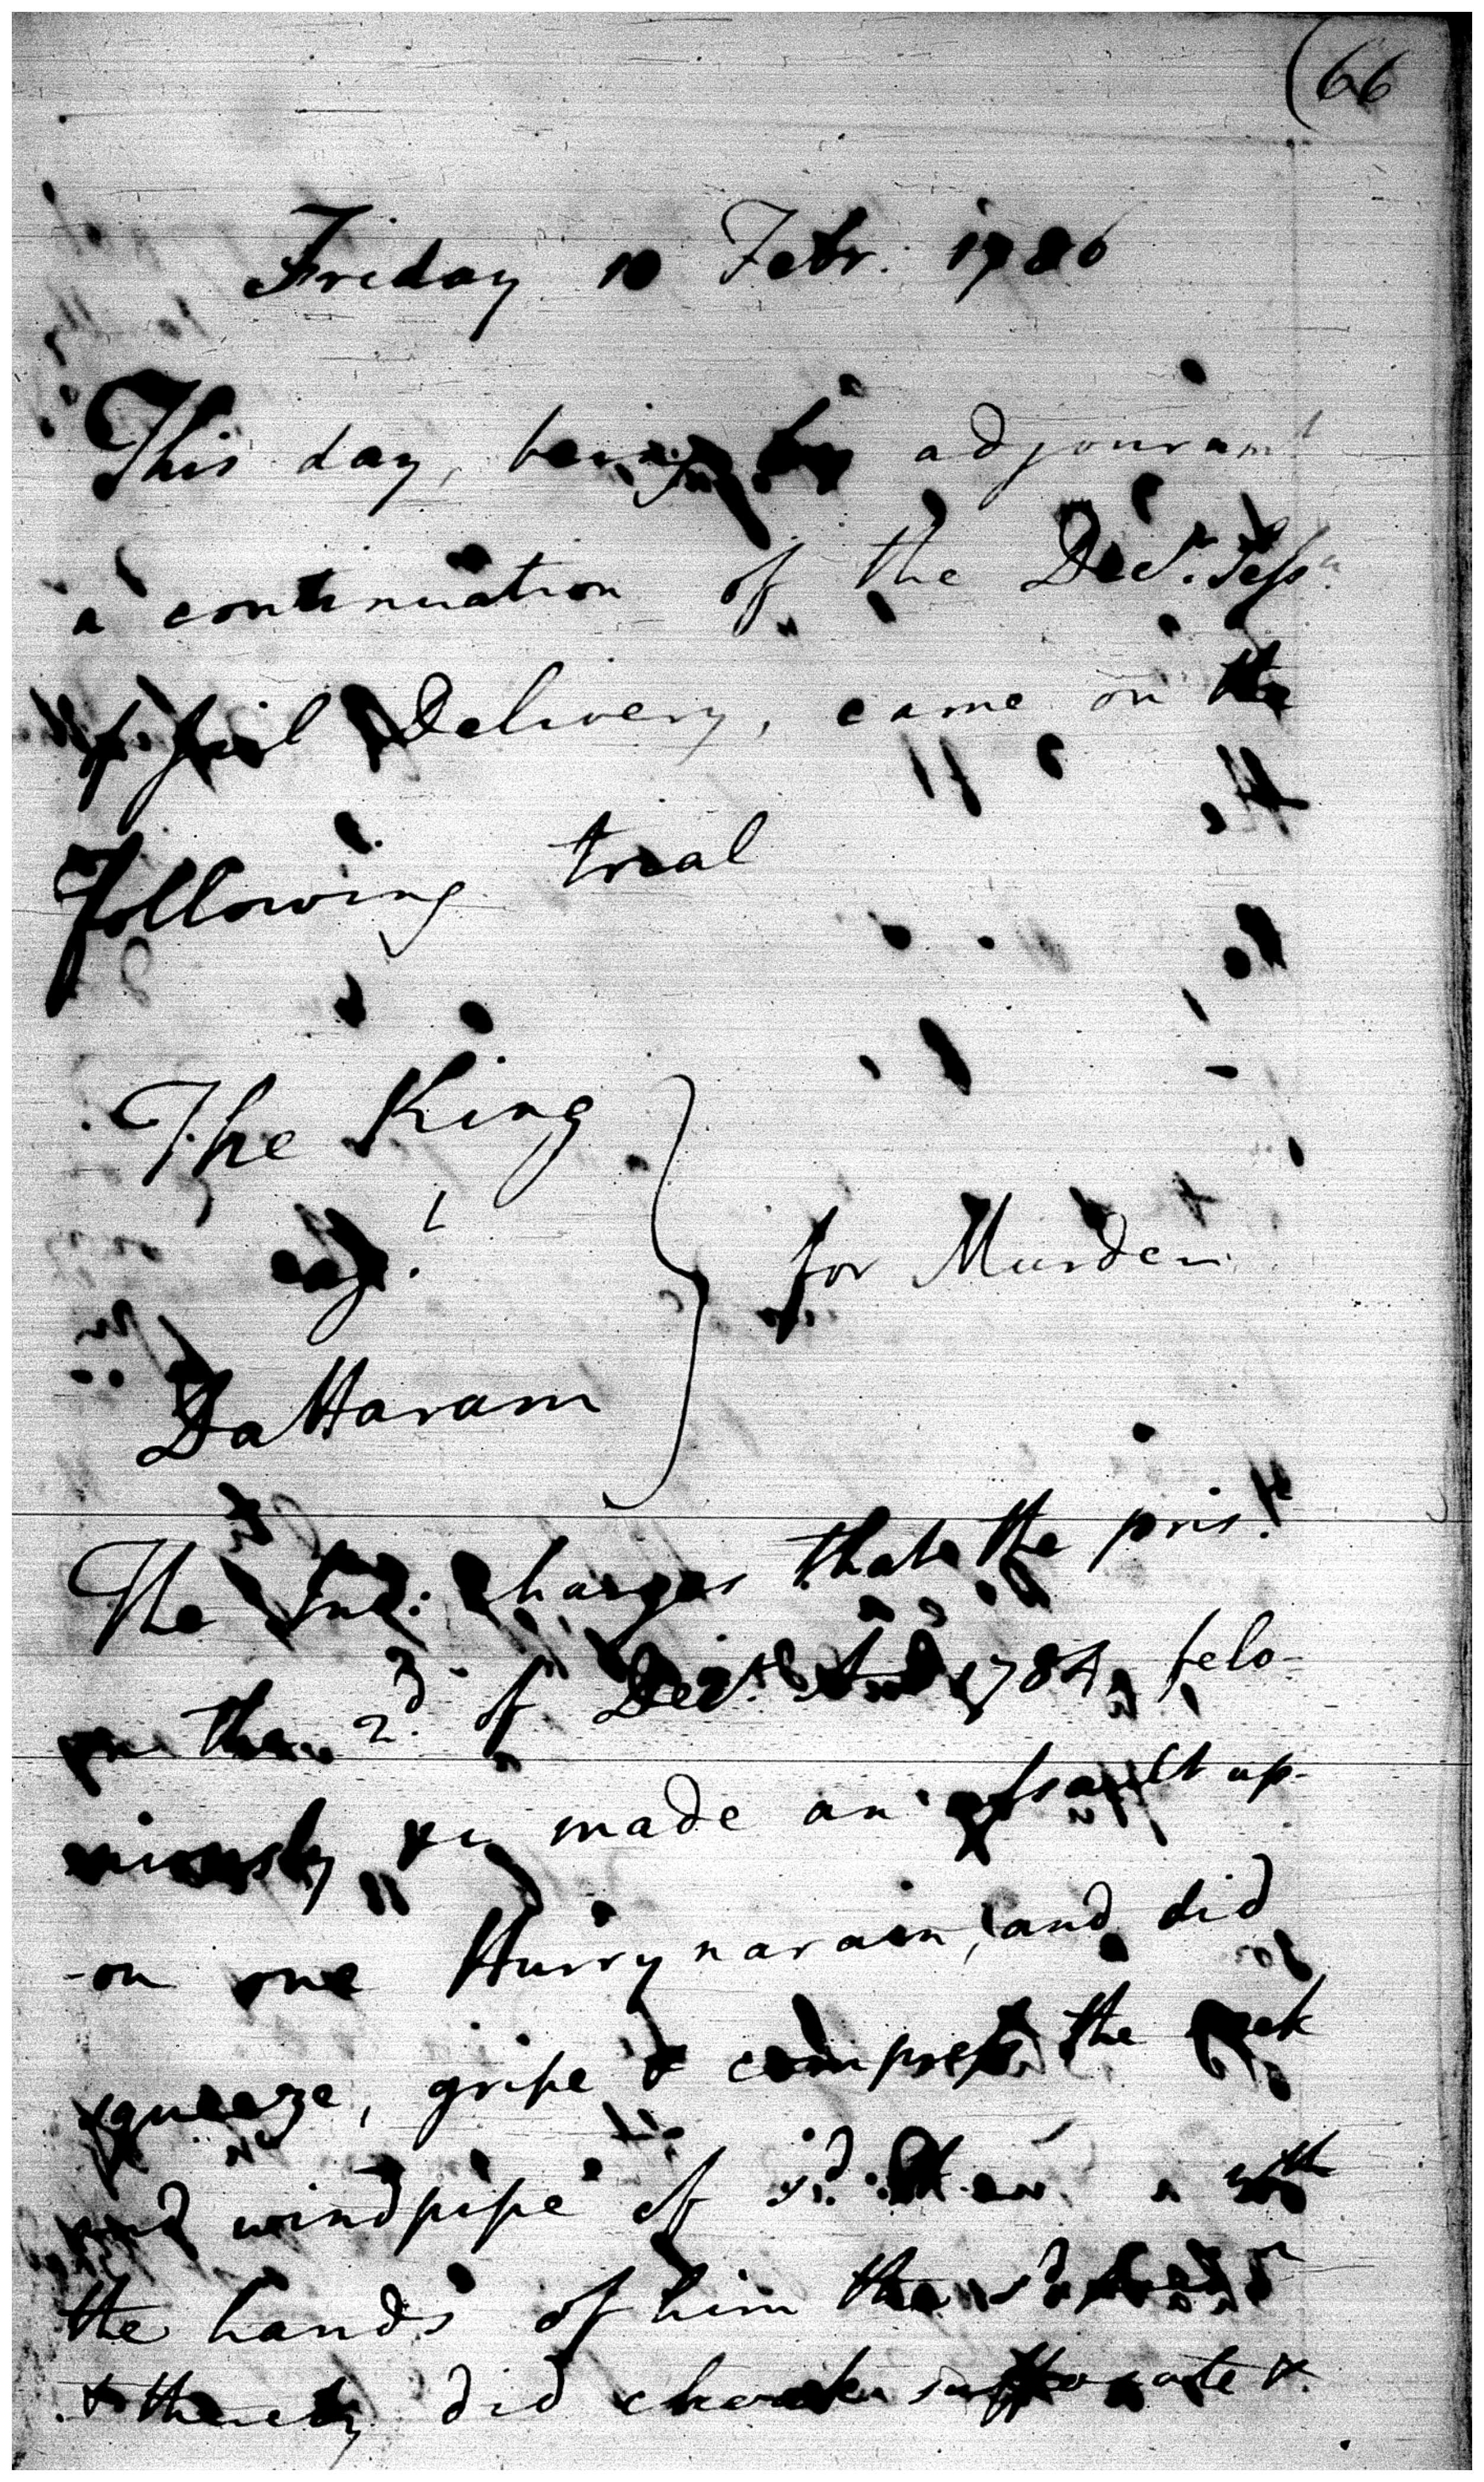 (66
Friday 10 Febr. 1786
This day, being by adjournmt
a continuation of the Decr. Sessn.
of Jail Delivery, came on the
following trial
The King
agt.
Dattaram
} for Murder
The Ind: charges that the prisr.
on the 2d. of Decr. 1784, felo-
niously &c made an assault up-
-on one Hurrynarain, and did
squeeze, gripe & compress the neck
and windpipe of sd. with
the hands of him the sd.
& thereby did choak suffocate &